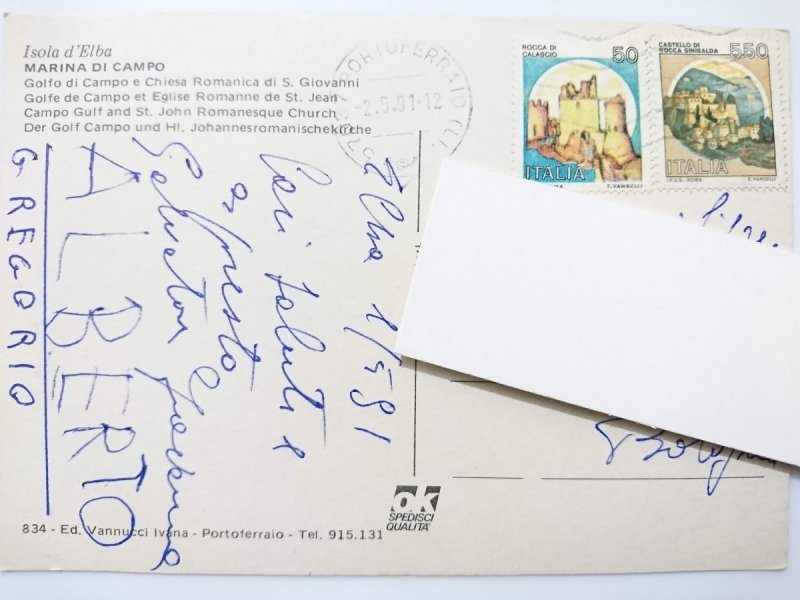 Isola d'Elba
MARINA DI CAMPO
Golfo di Campo e Chiesa Romanica di S. Giovanni
Golfe de Campo et Eglise Romanne de St. Jean
Campo Gulf and St. John Romanesque Church
Der Golf Campo und Hl. Johannesromanischekirche
PORTOFERRAIO (LI)
-2.5.91-12
ROCCA DI CALASCIO
50
ITALIA
E. VANGELLI
CASTELLO DI ROCCA SINIBALDA
550
ITALIA
I.P.Z.S. ROMA E. VANGELLI
Elba 1/5 91
Cari saluti e
a presto
e
ALBERTO
GREGORIO
Bologna
ok
SPEDISCI
QUALITA'
834 - Ed. Vannucci Ivana - Portoferraio - Tel. 915.131